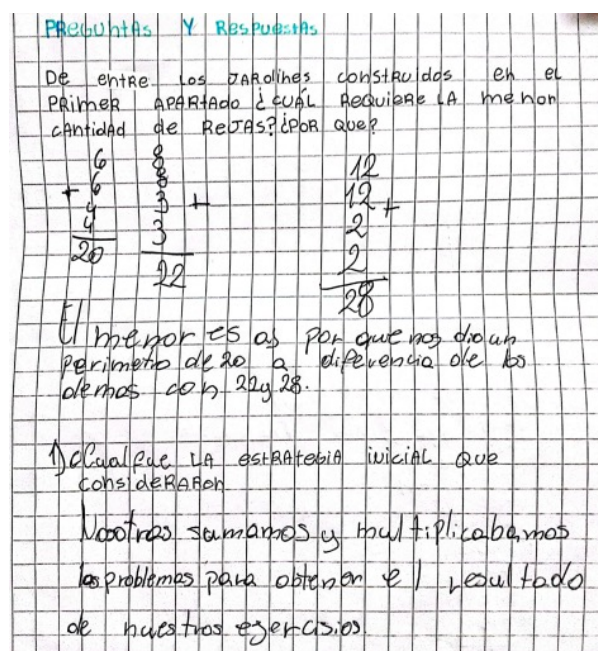 PREGUNTAS Y RESPUESTAS
DE ENTRE LOS JARDINES CONSTRUIDOS EN EL
PRIMER APARTADO ¿CUÁL REQUIERE LA MENOR
CANTIDAD de REJAS? ¿POR QUE?
6 8 12
+ 6 8 12
4 3 + 2 +
4 3 2
20 22 28
El menor es a) por que nos dio un
perimetro de 20 a diferencia de los
demas con 22 y 28.
1) ¿Cual fue LA ESTRATEGIA INICIAL QUE
CONSIDERARON
Nosotras sumamos y multiplicabamos
los problemas para obtener el resultado
de nuestros egercisios.